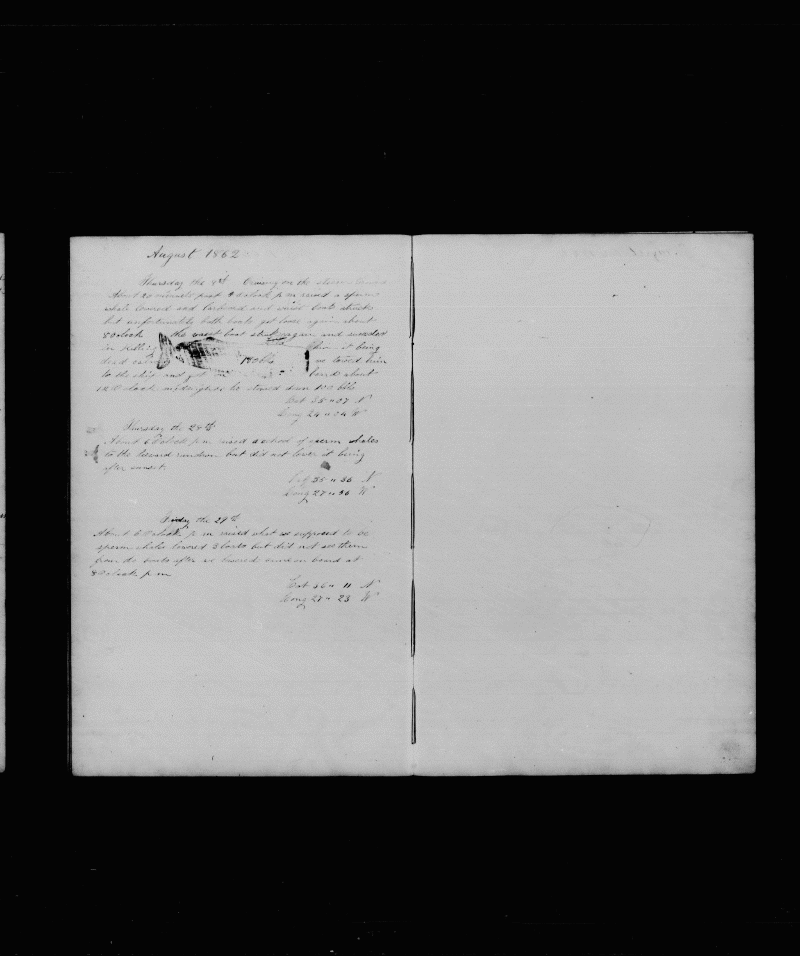 August 1862
Thursday the Cruising on the
About 20 minuets past Oclock p m raised a sperm
whale lowered and and waist boats struck
but unfortunately both boats got loose again about
8 Oclock the waist boat struck again and succeded
in killing him it being
dead 100 bbls we towed him
to the ship and got board about
12 Oclock midnight he stowed down 100 bbls
Lat 35 " 07 N
Long 24 " 04 W
Thursday the 28th
About 6 Oclock p m raised a school of sperm whales
to the leeward but did not lower it being
after sunset
Lat 35 " 36 N
Long 27 " 36 W
Friday the 29th
About 6 Oclock p m raised what we supposed to be
sperm whales lowered 3 boats but did not see them
from the boats after we lowered on board at
8 Oclock p m
Lat 36 " 11 N
Long 27 " 23 W